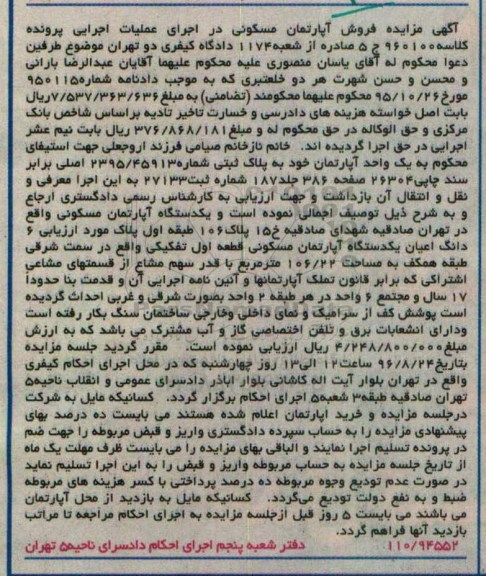 آگهی مزایده فروش آپارتمان مسکونی در اجرای عملیات اجرایی پرونده
کلاسه۹۶۰۱۰۰ ج ۵ صادره از شعبه۱۱۷۴ دادگاه کیفری دو تهران موضوع طرفین
دعوا محکوم له آقای یاسان منصوری علیه محکوم علیهما آقایان عبدالرضا بارانی
و محسن و حسن شهرت هر دو خلعتبری که به موجب دادنامه شماره۹۵۰۱۱۵
مورخ۹۵/۱۰/۲۶ محکوم علیهما محکومند (تضامنی) به مبلغ۷/۵۳۷/۳۶۳/۶۳۶ریال
بابت اصل خواسته هزینه های دادرسی و خسارت تاخیر تادیه براساس شاخص بانک
مرکزی و حق الوکاله در حق محکوم له و مبلغ۳۷۶/۸۶۸/۱۸۱ ریال بابت نیم عشر
اجرایی در حق اجرا گردیده اند. خانم نازخانم صیامی فرزند اروجعلی جهت استیفای
محکوم به یک واحد آپارتمان خود به پلاک ثبتی شماره۲۳۹۵/۴۵۹۱۳ اصلی برابر
سند چاپی۲۶۳۰۴ صفحه ۳۸۶ جلد۱۸۷ شماره ثبت۲۷۱۳۳ به این اجرا معرفی و
نقل و انتقال آن بازداشت و جهت ارزیابی به کارشناس رسمی دادگستری ارجاع
و به شرح ذیل توصیف اجمالی نموده است و یکدستگاه آپارتمان مسکونی واقع
در تهران صادقیه شهدای صادقیه خ۱۵ پلاک۱۰۶ طبقه اول پلاک مورد ارزیابی ۶
دانگ اعیان یکدستگاه آپارتمان مسکونی قطعه اول تفکیکی واقع در سمت شرقی
طبقه همکف به مساحت ۱۰۶/۲۲ مترمربع با قدر سهم مشاع از قسمتهای مشاعی
اشتراکی که برابر قانون تملک آپارتمانها و آئین نامه اجرایی آن و قدمت بنا حدودا
۱۷ سال و مجتمع ۶ واحد در هر طبقه ۲ واحد بصورت شرقی و غربی احداث گردیده
است پوشش کف از سرامیک و نمای داخلی وخارجی ساختمان سنگ بکار رفته است
ودارای انشعابات برق و تلفن اختصاصی گاز و آب مشترک می باشد که به ارزش
مبلغ۴/۲۴۸/۸۰۰/۰۰۰ ریال ارزیابی نموده است. مقرر گردید جلسه مزایده
بتاریخ۹۶/۸/۲۴ ساعت۱۲ الی۱۳ روز چهارشنبه که در محل اجرای احکام کیفری
واقع در تهران بلوار آیت اله کاشانی بلوار اباذر دادسرای عمومی و انقلاب ناحیه۵
تهران صادقیه طبقه۳ شعبه۵ اجرای احکام برگزار گردد. کسانیکه مایل به شرکت
درجلسه مزایده و خرید اپارتمان اعلام شده هستند می بایست ده درصد بهای
پیشنهادی مزایده را به حساب سپرده دادگستری واریز و قبض مربوطه را جهت ضم
در پرونده تسلیم اجرا نمایند و الباقی بهای مزایده را می بایست ظرف مهلت یک ماه
از تاریخ جلسه مزایده به حساب مربوطه واریز و قبض را به این اجرا تسلیم نماید
در صورت عدم تودیع وجوه مربوطه ده درصد پرداختی با کسر هزینه های مربوطه
ضبط و به نفع دولت تودیع می‌گردد. کسانیکه مایل به بازدید از محل آپارتمان
می باشند می بایست ۵ روز قبل ازجلسه مزایده به اجرای احکام مراجعه تا مراتب
بازدید آنها فراهم گردد.
۱۱۰/۹۴۵۵۲ دفتر شعبه پنجم اجرای احکام دادسرای ناحیه۵ تهران